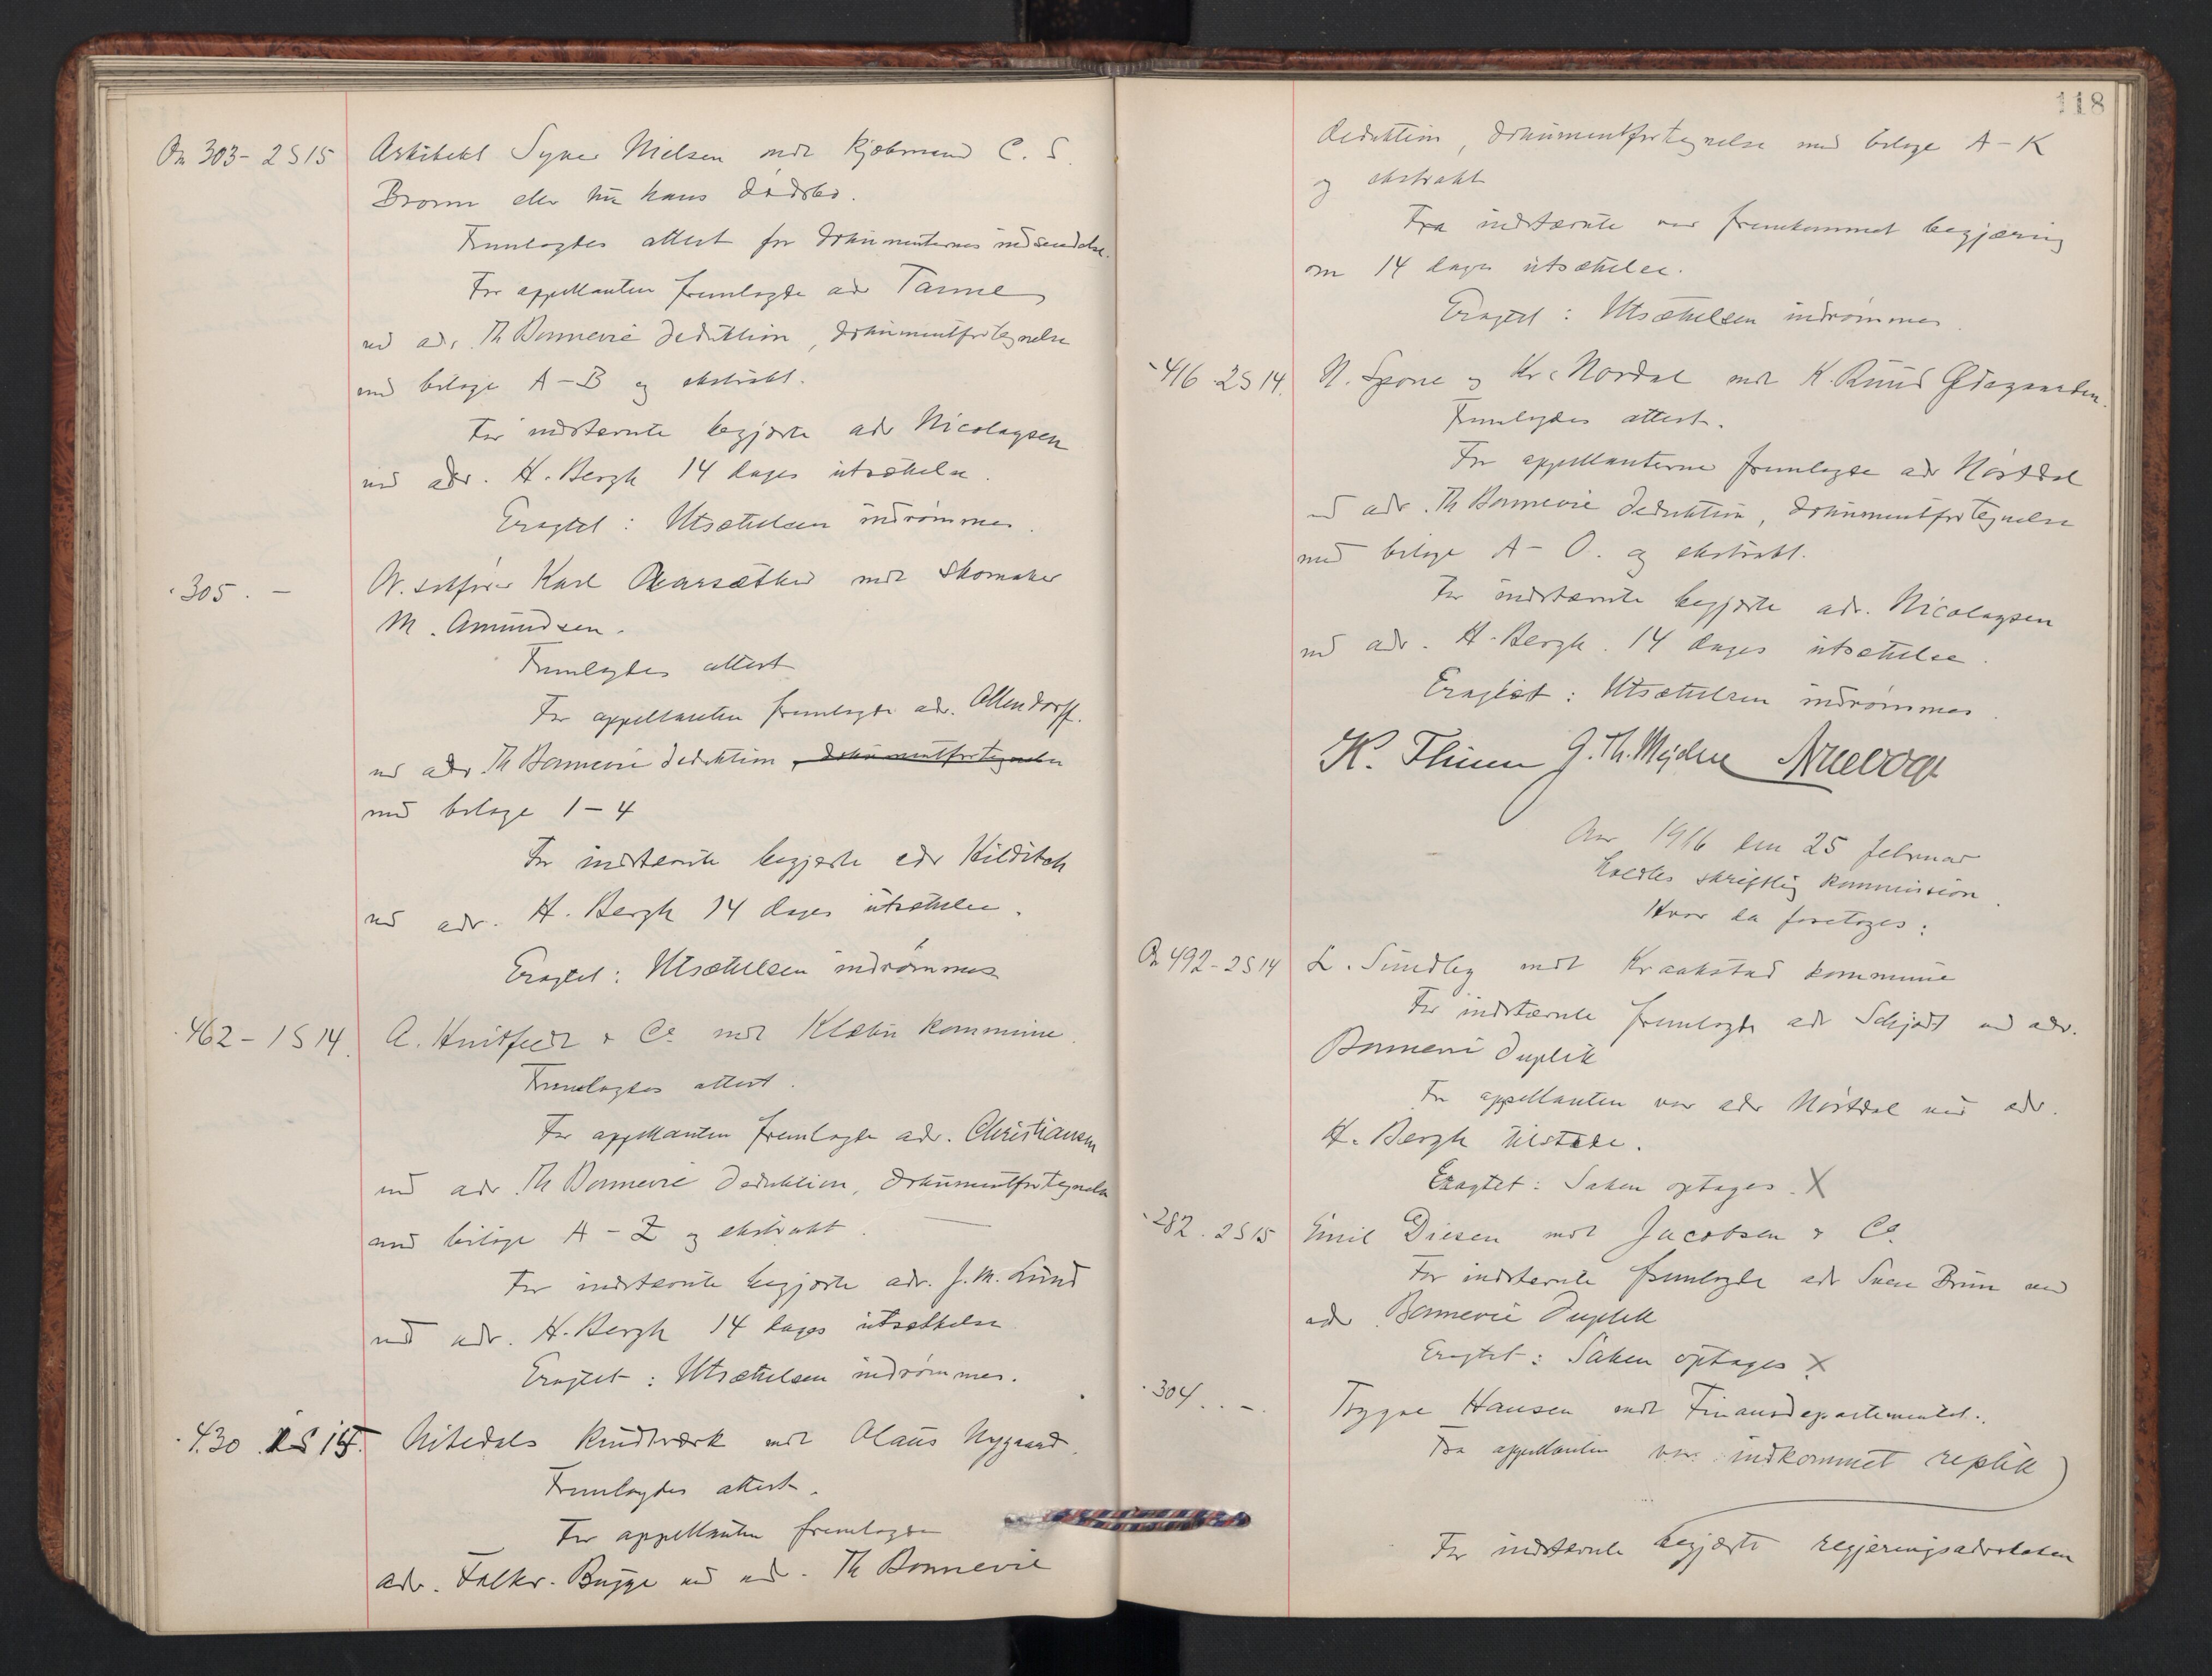 On 303 - 2 S 15 Arkitekt Syver Nielsen mot kjøbmand C. S.
Bronn eller nu hans dødsbo.
Fremlagdes attest for dokumenternes indsendelse.
For appellanten fremlagde adv Fanne
ved adv. Th Bonnevie deduktion, dokumentfortegnelse
med bilage A - B og ekstrakt.
For indstevnte begjærte adv Nicolaysen
ved adv. H. Bergh 14 dages utsættelse.
Eragtet: Utsættelsen indrømmes.
305. - O. r. sakfører Karl Aarsæther mot skomaker
M. Amundsen.
Fremlagdes attest
For appellanten fremlagde adv. Ollendorff.
ved adv Th Bonnevie deduktion, dokumentfortegnelse
med bilage 1 - 4
For indstevnte begjærte adv Hilditch
ved adv. H. Bergh 14 dages utsættelse.
Eragtet: Utsættelsen indrømmes
462 - 1 S 14. A. Huitfeldt & Co mot Klæbu kommune.
Fremlagdes attest.
For appellanten fremlagde adv. Christiansen
ved adv Th Bonnevie deduktion, dokumentfortegnelse
med bilage A - Z og ekstrakt.
For indstevnte begjærte adv. J. M. Lund
ved adv. H. Bergh 14 dages utsættelse
Eragtet: Utsættelsen indrømmes.
430 S 15. Nitedals krudtværk mot Olaus Nygaard.
Fremlagdes attest.
For appellanten fremlagde
adv. Falkv. Bugge ved adv. Th Bonnevie
118
deduktion, dokumentfortegnelse med bilage A - K
og ekstrakt
Fra indstevnte var fremkommet begjæring
om 14 dages utsættelse.
Eragtet: Utsættelsen indrømmes.
416 - 2 S 14. N. Spone og Kr. Nordal mot K. Ruud
Fremlagdes attest.
For appellanterne fremlagde adv Nørdal
ved adv. Th Bonnevie deduktion, dokumentfortegnelse
med bilage A - O. og ekstrakt.
For indstevnte begjærte adv. Nicolaysen
ved adv. H. Bergh. 14 dages utsættelse.
Eragtet: Utsættelsen indrømmes.
K. Thinn G. Th. Mejdell
Aar 1916 den 25 februar
holdtes skriftlig kommission.
Hvor da foretoges:
On 492 - 2 S 14 L. Sundby mot Kraakstad kommune
For indstevnte fremlagde adv Schjødt ved adv.
Bonnevie duplik
For appellanten var adv Nørdal ved adv.
H. Bergh tilstede.
Eragtet: Saken optages. X
282. 2 S 15 Emil Diesen mot Jacobsen & Co.
For indstevnte fremlagde adv Sven Brun ved
adv Bonnevie duplik
Eragtet: Saken optages X
304. . - . Trygve Hansen mot Finansdepartementet.
Fra appellanten var indkommet replik
For indstevnte begjærte regjeringsadvokaten